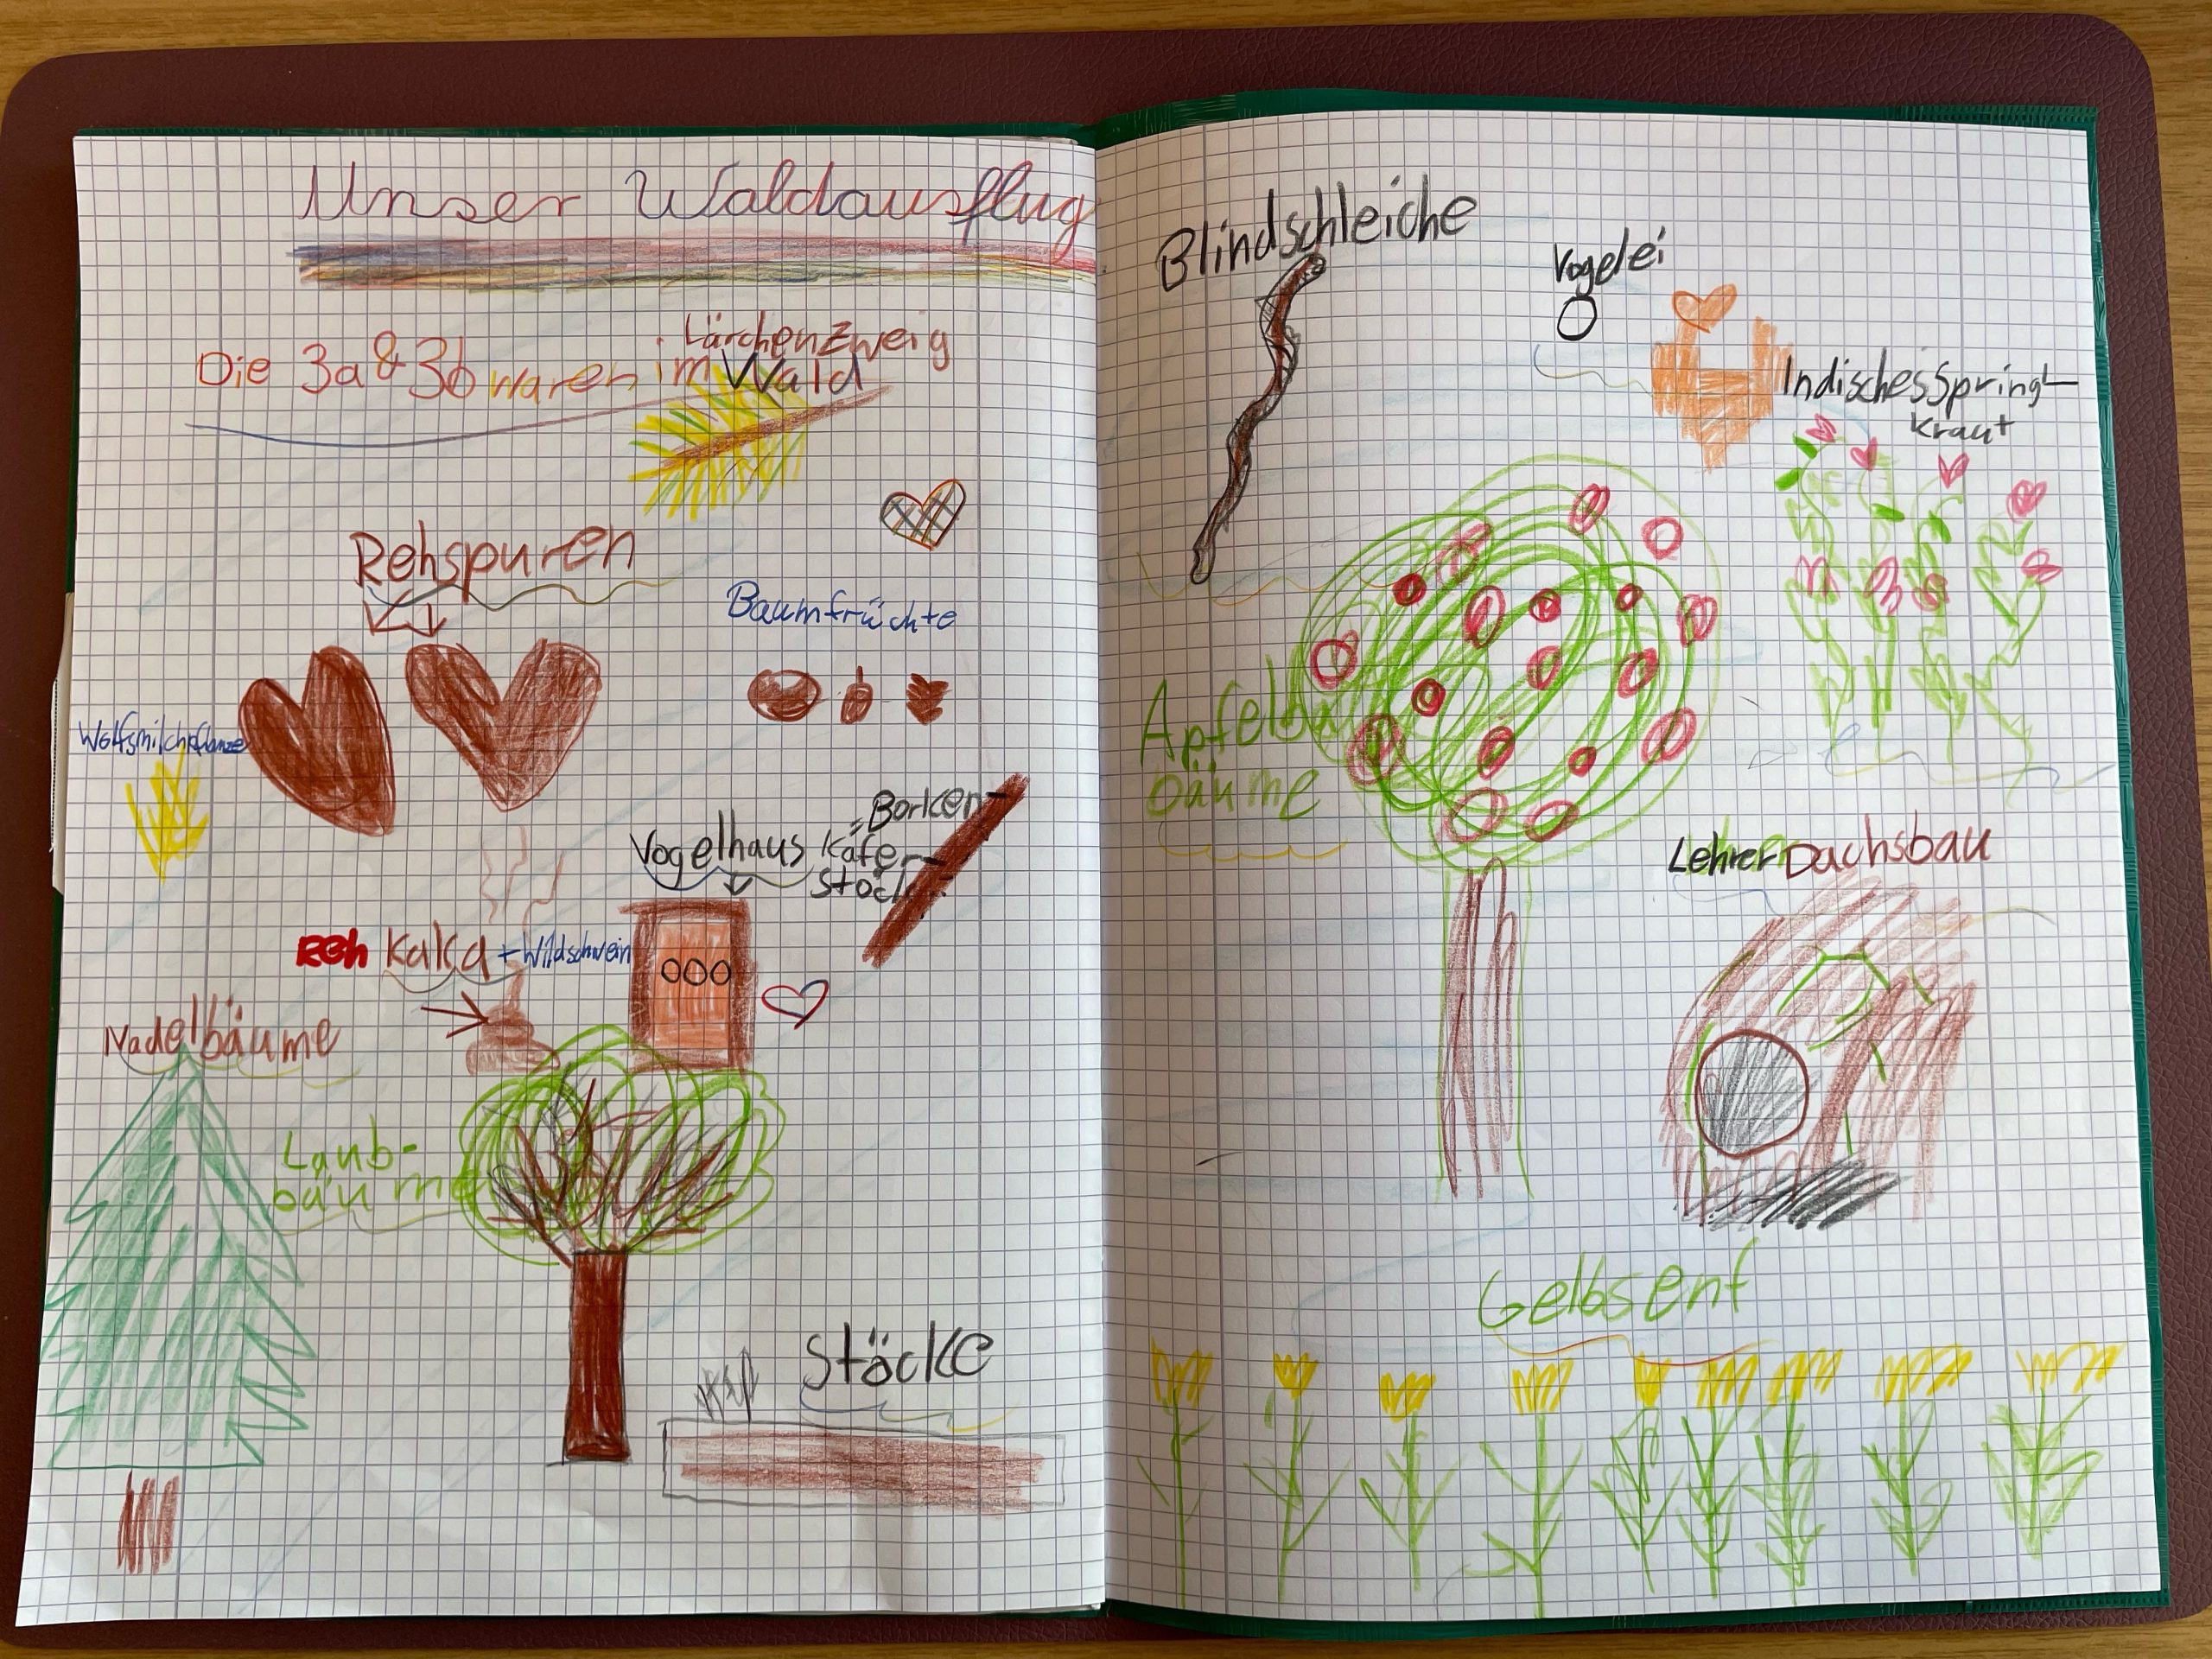 Unser Waldausflug
Die 3a & 3b waren im Wald
Lärchenzweig
Rehspuren
Baumfrüchte
Wolfsmilchpflanze
Borken-
käfer-
stock
Vogelhaus
Reh Kaka + Wildschwein
Nadelbäume
Laub-
bäume
Stöcke
Blindschleiche
Vogelei
Indisches Spring-
kraut
Apfelbä
bäume
Lehrer Dachsbau
Gelbsenf